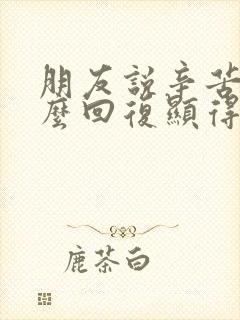 朋友說辛苦
麼回復顯得
鹿茶白